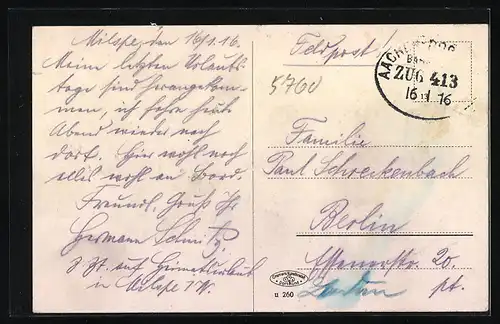 Milspe, den 16/1.16.
Meine letzten Urlaubs-
tage sind herangekom-
men, ich fahre heute
Abend wieder nach
dort. Hier wohl noch
alles wohl an Bord.
Freundl. Gruß Ihr
Hermann Schmitz,
z. Zt. auf Heimaturlaub
in Milspe i/W.
Feldpost!
5760
AACHEN
BAHN
ZUG 413
16 1 16
Familie
Paul Schreckenbach
Berlin
Essenerstr. 20.
pt.
u 260